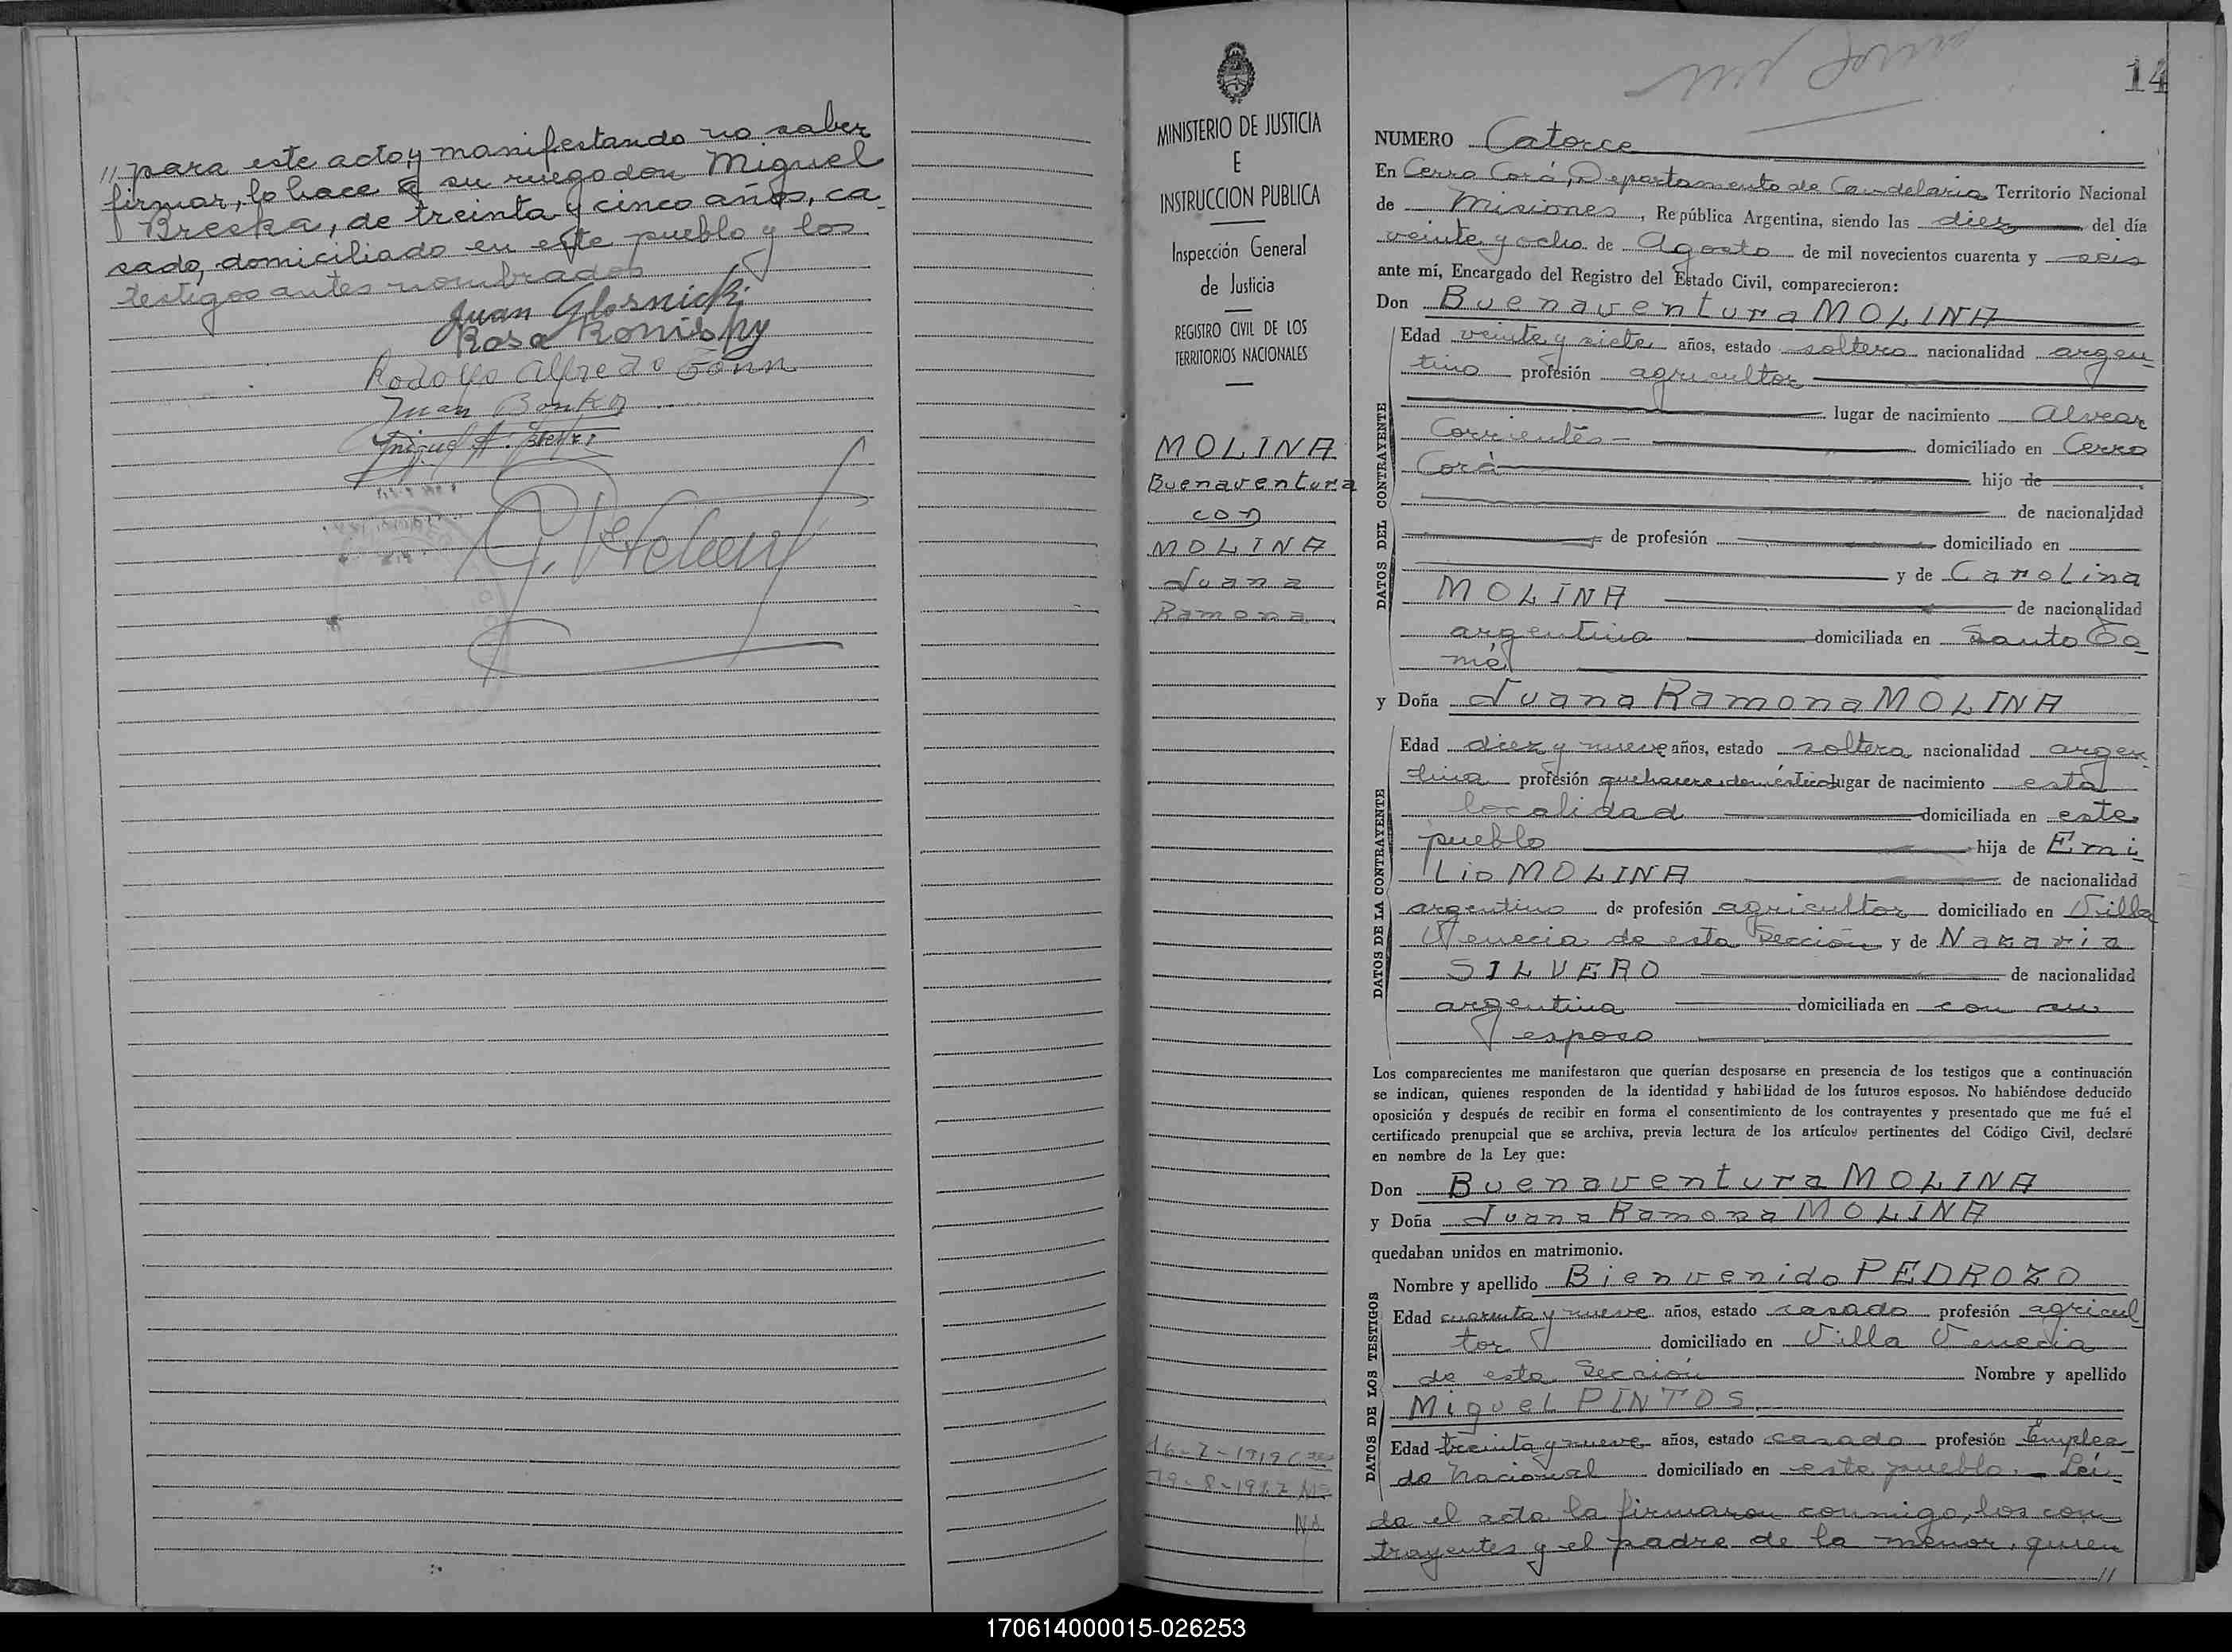 // para este acto, y manifestando no saber
firmar, lo hace a su ruego don Miguel
Brecka, de treinta y cinco años, ca-
sado, domiciliado en este pueblo y los
testigos antes nombrados
Juan Glosnicki
Rosa Konisky
Rodolfo Alfredo Tonn
Juan Bonko
Miguel A.
MINISTERIO DE JUSTICIA
E
INSTRUCCION PUBLICA
Inspección General
de Justicia
REGISTRO CIVIL DE LOS
TERRITORIOS NACIONALES
MOLINA
Buenaventura
con
MOLINA
Juana
Ramona
NA
14
NUMERO Catorce
En Cerro Corá, Departamento de Candelaria Territorio Nacional
de Misiones, República Argentina, siendo las diez del día
veinte y ocho de Agosto de mil novecientos cuarenta y seis
ante mí, Encargado del Registro del Estado Civil, comparecieron:
Don Buenaventura MOLINA
DATOS DEL CONTRAYENTE
Edad veinte y siete años, estado soltero nacionalidad argen-
tino profesión agricultor
lugar de nacimiento Alvear
Corrientes - domiciliado en Cerro
Corá hijo de
de nacionalidad
de profesión domiciliado en
y de Carolina
MOLINA de nacionalidad
argentina domiciliada en Santo To-
mé
y Doña Juana Ramona MOLINA
DATOS DE LA CONTRAYENTE
Edad diez y nueve años, estado soltera nacionalidad argen-
tina profesión quehaceres domésticos lugar de nacimiento esta
localidad domiciliada en este
pueblo hija de Emi-
lio MOLINA de nacionalidad
argentino de profesión agricultor domiciliado en Villa
Venecia de esta Sección y de Nazaria
SILVERO de nacionalidad
argentina domiciliada en con su
esposo
Los comparecientes me manifestaron que querían desposarse en presencia de los testigos que a continuación
se indican, quienes responden de la identidad y habilidad de los futuros esposos. No habiéndose deducido
oposición y después de recibir en forma el consentimiento de los contrayentes y presentado que me fué el
certificado prenupcial que se archiva, previa lectura de los artículos pertinentes del Código Civil, declaré
en nombre de la Ley que:
Don Buenaventura MOLINA
y Doña Juana Ramona MOLINA
quedaban unidos en matrimonio.
DATOS DE LOS TESTIGOS
Nombre y apellido Bienvenido PEDROZO
Edad cuarenta y nueve años, estado casado profesión agricul-
tor domiciliado en Villa Venecia
de esta Sección Nombre y apellido
Miguel PINTOS
Edad treinta y nueve años, estado casado profesión Emplea-
do Nacional domiciliado en este pueblo. - Leí-
da el acta la firmaron conmigo, los con-
trayentes y el padre de la menor, quien
//
170614000015-026253